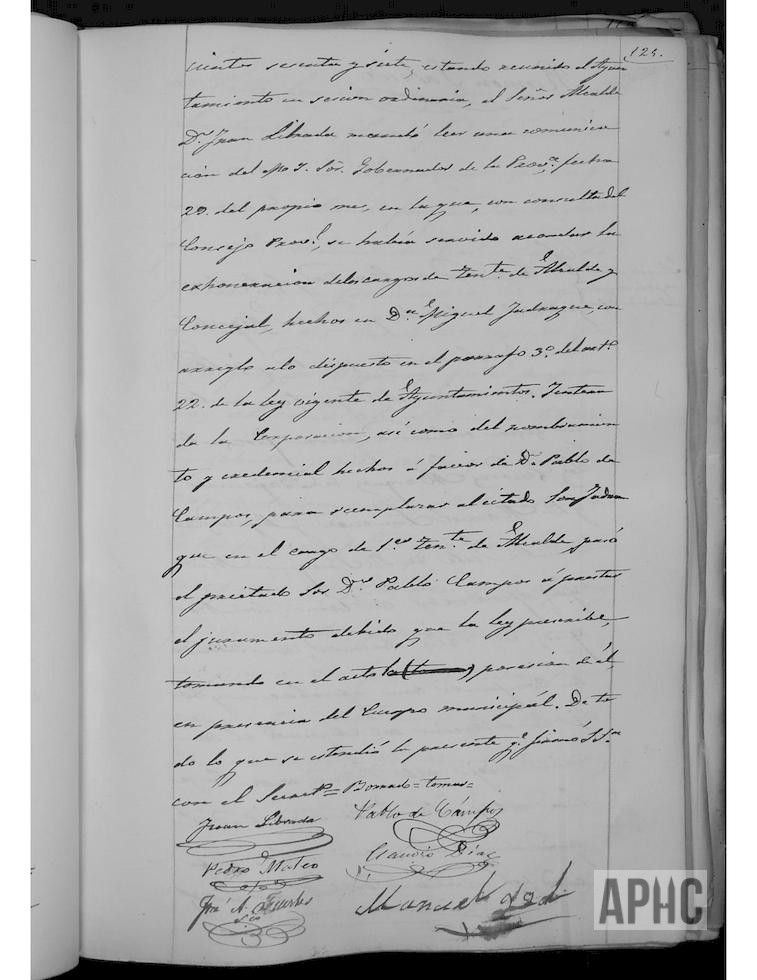 124.
cientos sesenta y siete, estando reunido el Ayun
tamiento en sesion ordinaria, el Señor Alcalde
Dn. Juan Librada mandó leer una comunica
cion del M. I. Sor. Gobernador de la Prova. fecha
22. del propio mes, en la que, con consulta del
Consejo Provl., se habia servido acordar la
exhoneracion delos cargos de Tente. de Alcalde y
Concejal, hechos en Dn. Miguel Jadraque, con
arreglo alo dispuesto en el parrafo 3º. del artº.
22. de la ley vigente de Ayuntamientos. Entera
da la Corporacion, asi como del nombramien
to y credencial hechos á favor de Dn. Pablo de
Campos, para reemplazar al citado Sor. Jadra
que en el cargo de 1er. Tente. de Alcalde, pasó
el precitado Sor. Dn. Pablo Campos á prestar
el juramento debido que la ley prescribe,
tomando en el acto posesion de él,
en presencia del Cuerpo municipál. De to
do lo que se estendió la presente q. firmó SSa.
con el Secretº.= Borrado= tomar=
Juan Librada
Pablo de Cámpos
Pedro Mateo
Claudio Diaz
José A. Fuertes
Sco
Manuel
APHC